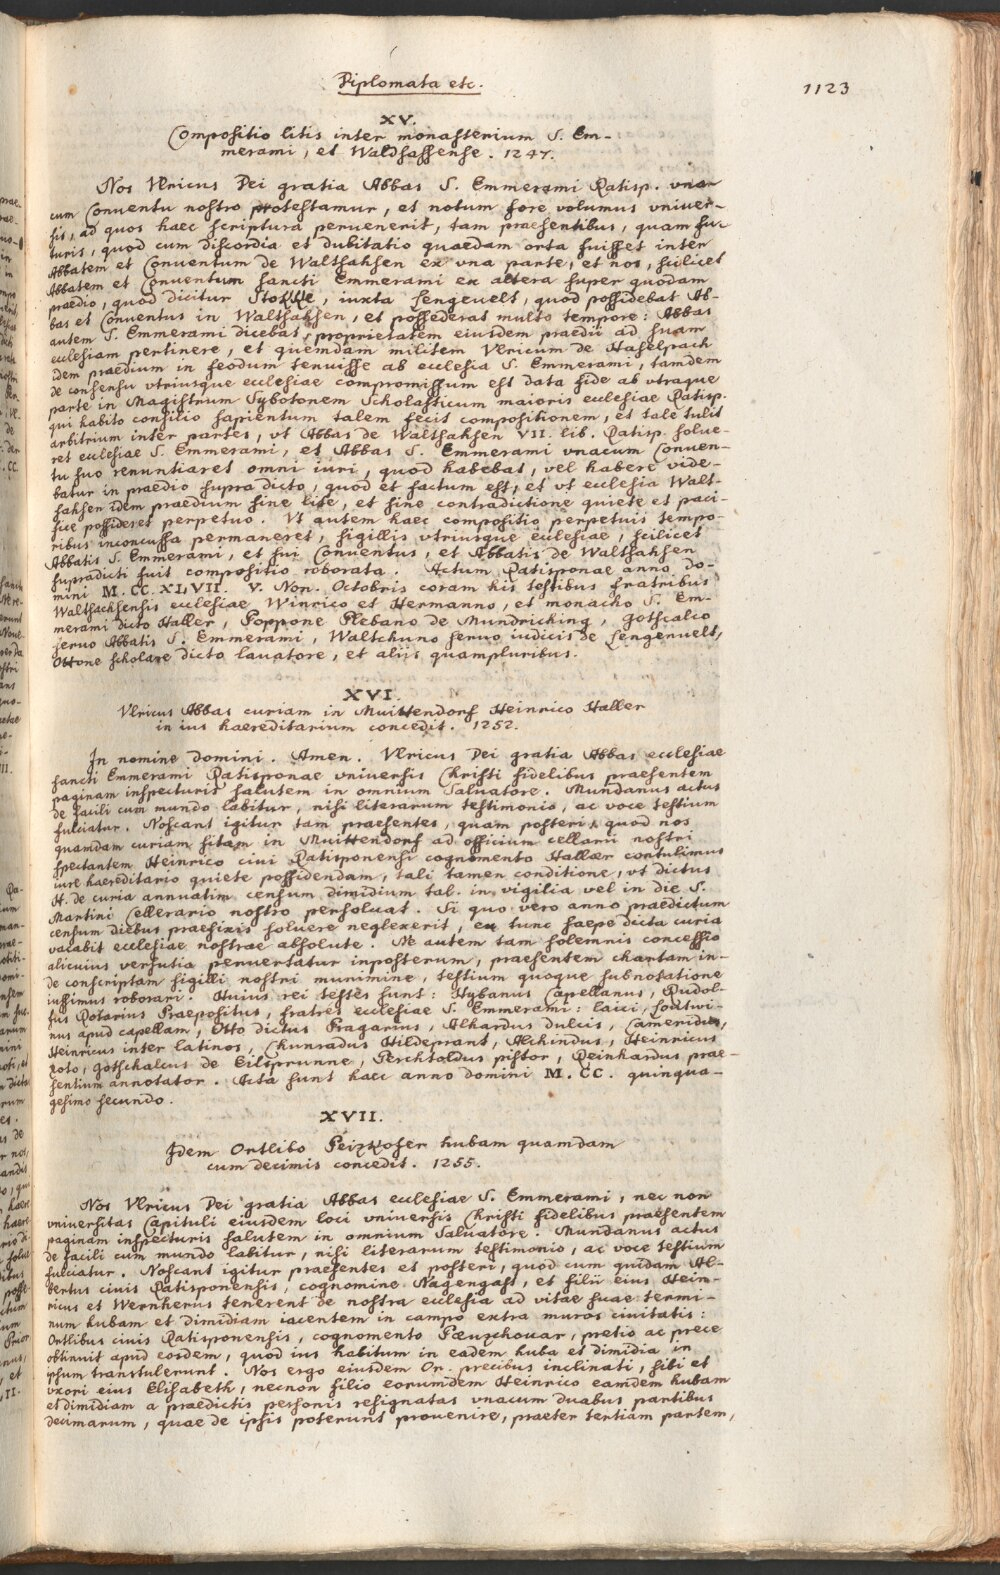 Diplomata etc.
1123
XV.
Compositio litis inter monasterium S. Em-
merami, et Waldsassense. 1247.
Nos Vlricus Dei gratia Abbas S. Emmerami Ratisp. vna
cum Conventu nostro protestamur, et notum fore volumus vniver-
sis, ad quos haec scriptura peruenerit, tam praesentibus, quam fu-
turis, quod cum discordia et dubitatio quaedam orta fuisset inter
Abbatem et Conventum de Waltsahsen ex vna parte, et nos, scilicet
Abbatem et Conventum sancti Emmerami ex altera super quodam
praedio, quod dicitur , iuxta Lengevelt, quod possidebat Ab-
bas et Conventus in Waltsahsen, et possederat multo tempore: Abbas
autem S. Emmerami dicebat proprietatem eiusdem praedii ad suam
ecclesiam pertinere, et quemdam militem Vlricum de Haselpach
idem praedium in feodum tenuisse ab ecclesia S. Emmerami, tamdem
de consensu vtriusque ecclesiae compromissum est data fide ab vtraque
parte in Magistrum Sybotonem Scholasticum maioris ecclesiae Ratisp.
qui habito consilio sapientum talem fecit compositionem, et tale tulit
arbitrium inter partes, vt Abbas de Waltsahsen VII. lib. Ratisp. solue-
ret ecclesiae S. Emmerami, et Abbas S. Emmerami vnacum Conven-
tu suo renuntiaret omni iuri, quod habebat, vel habere vide-
batur in praedio supra dicto, quod et factum est, et vt ecclesia Walt-
sahsen idem praedium sine lite, et sine contradictione quiete et paci-
fice possideret perpetuo. Vt autem haec compositio perpetuis tempo-
ribus inconcussa permaneret, sigillis vtriusque ecclesiae, scilicet
Abbatis S. Emmerami, et sui Conventus, et Abbatis de Waltsahsen
supradicti fuit compositio roborata. Actum Ratisponae anno Do-
mini M. CC. XLVII. V. Non. Octobris coram his testibus fratribus
Waltsachsensis ecclesiae Winrico et Hermanno, et monacho S. Em-
merami dicto Haller, Poppone Plebano de Mundriching, Gothscalco
seruo Abbatis S. Emmerami, Waltchuno seruo iudicis de Lengenuelt,
Ottone scholare dicto lauatore, et aliis quampluribus.
XVI.
Vlricus Abbas curiam in Muittendorf Heinrico Haller
in ius haereditarium concedit. 1252.
In nomine domini. Amen. Vlricus Dei gratia Abbas ecclesiae
sancti Emmerami Ratisponae vniversis Christi fidelibus praesentem
paginam inspecturis salutem in omnium Salvatore. Mundanus actus
de facili cum mundo labitur, nisi literarum testimonio, ac voce testium
fulciatur. Noscant igitur tam praesentes, quam posteri, quod nos
quamdam curiam sitam in Muittendorf ad officium cellarii nostri
spectantem Heinrico civi Ratisponensi cognomento Haller contulimus
iure haereditario quiete possidendam, tali tamen conditione, vt dictus
H. de curia annuatim censum dimidium tal. in vigilia vel in die S.
Martini Cellerario nostro persoluat. Si quo vero anno praedictum
censum diebus praefixis soluere neglexerit, ex tunc saepe dicta curia
vacabit ecclesiae nostrae absolute. Ne autem tam solemnis concessio
alicuius versutia peruertatur inposterum, praesentem chartam in-
de conscriptam sigilli nostri munimine, testium quoque subnotatione
iussimus roborari. Huius rei testes sunt: Hybanus Capellanus, Rudol-
fus Praepositus, fratres ecclesiae S. Emmerami: laici,
nus apud capellam, Otto dictus Pragarius, Alhardus dulcis,
Heinricus inter latinos, Chunradus Hildeprant, Alchindus, Heinricus
Zoto, Gotschalcus de Eilsprunne, Perchtoldus pistor, Reinhardus prae-
sentium annotator. Acta sunt haec anno domini M. CC. quinqua-
gesimo secundo.
XVII.
Idem Ortlibo Peizkofer hubam quamdam
cum decimis concedit. 1255.
Nos Vlricus Dei gratia Abbas ecclesiae S. Emmerami, nec non
vniversitas Capituli eiusdem loci vniversis Christi fidelibus praesentem
paginam inspecturis salutem in omnium Salvatore. Mundanus actus
de facili cum mundo labitur, nisi literarum testimonio, ac voce testium
fulciatur. Noscant igitur praesentes et posteri, quod cum quidam Al-
bertus civis Ratisponensis, cognomine Nagengast, et filii eius Hein-
ricus et Wernherus tenerent de nostra ecclesia ad vitae suae termi-
num hubam et dimidiam iacentem in campo extra muros civitatis:
Ortlibus civis Ratisponensis, cognomento , pretio ac prece
obtinuit apud eosdem, quod ius habitum in eadem huba et dimidia in
ipsum transtulerunt. Nos ergo eiusdem Or. precibus inclinati, sibi et
vxori eius Elisabeth, necnon filio eorumdem Heinrico eamdem hubam
et dimidiam a praedictis personis resignatas vnacum duabus partibus
decimarum, quae de ipsis poterunt provenire, praeter tertiam partem,